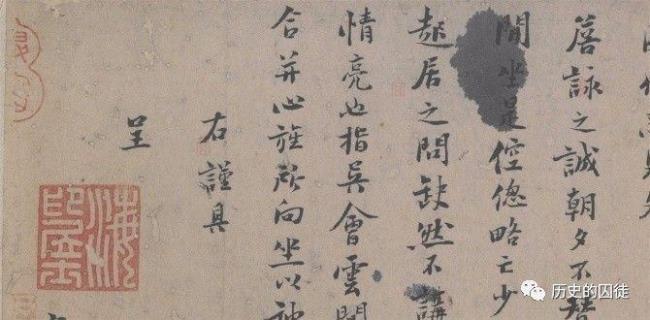 詠之誠朝夕不替
間坐是倥傯略亡少
起居之問缺然不講
情亮也指吳會雲間
合并心旌所向坐以神
右謹具
呈
历史的囚徒